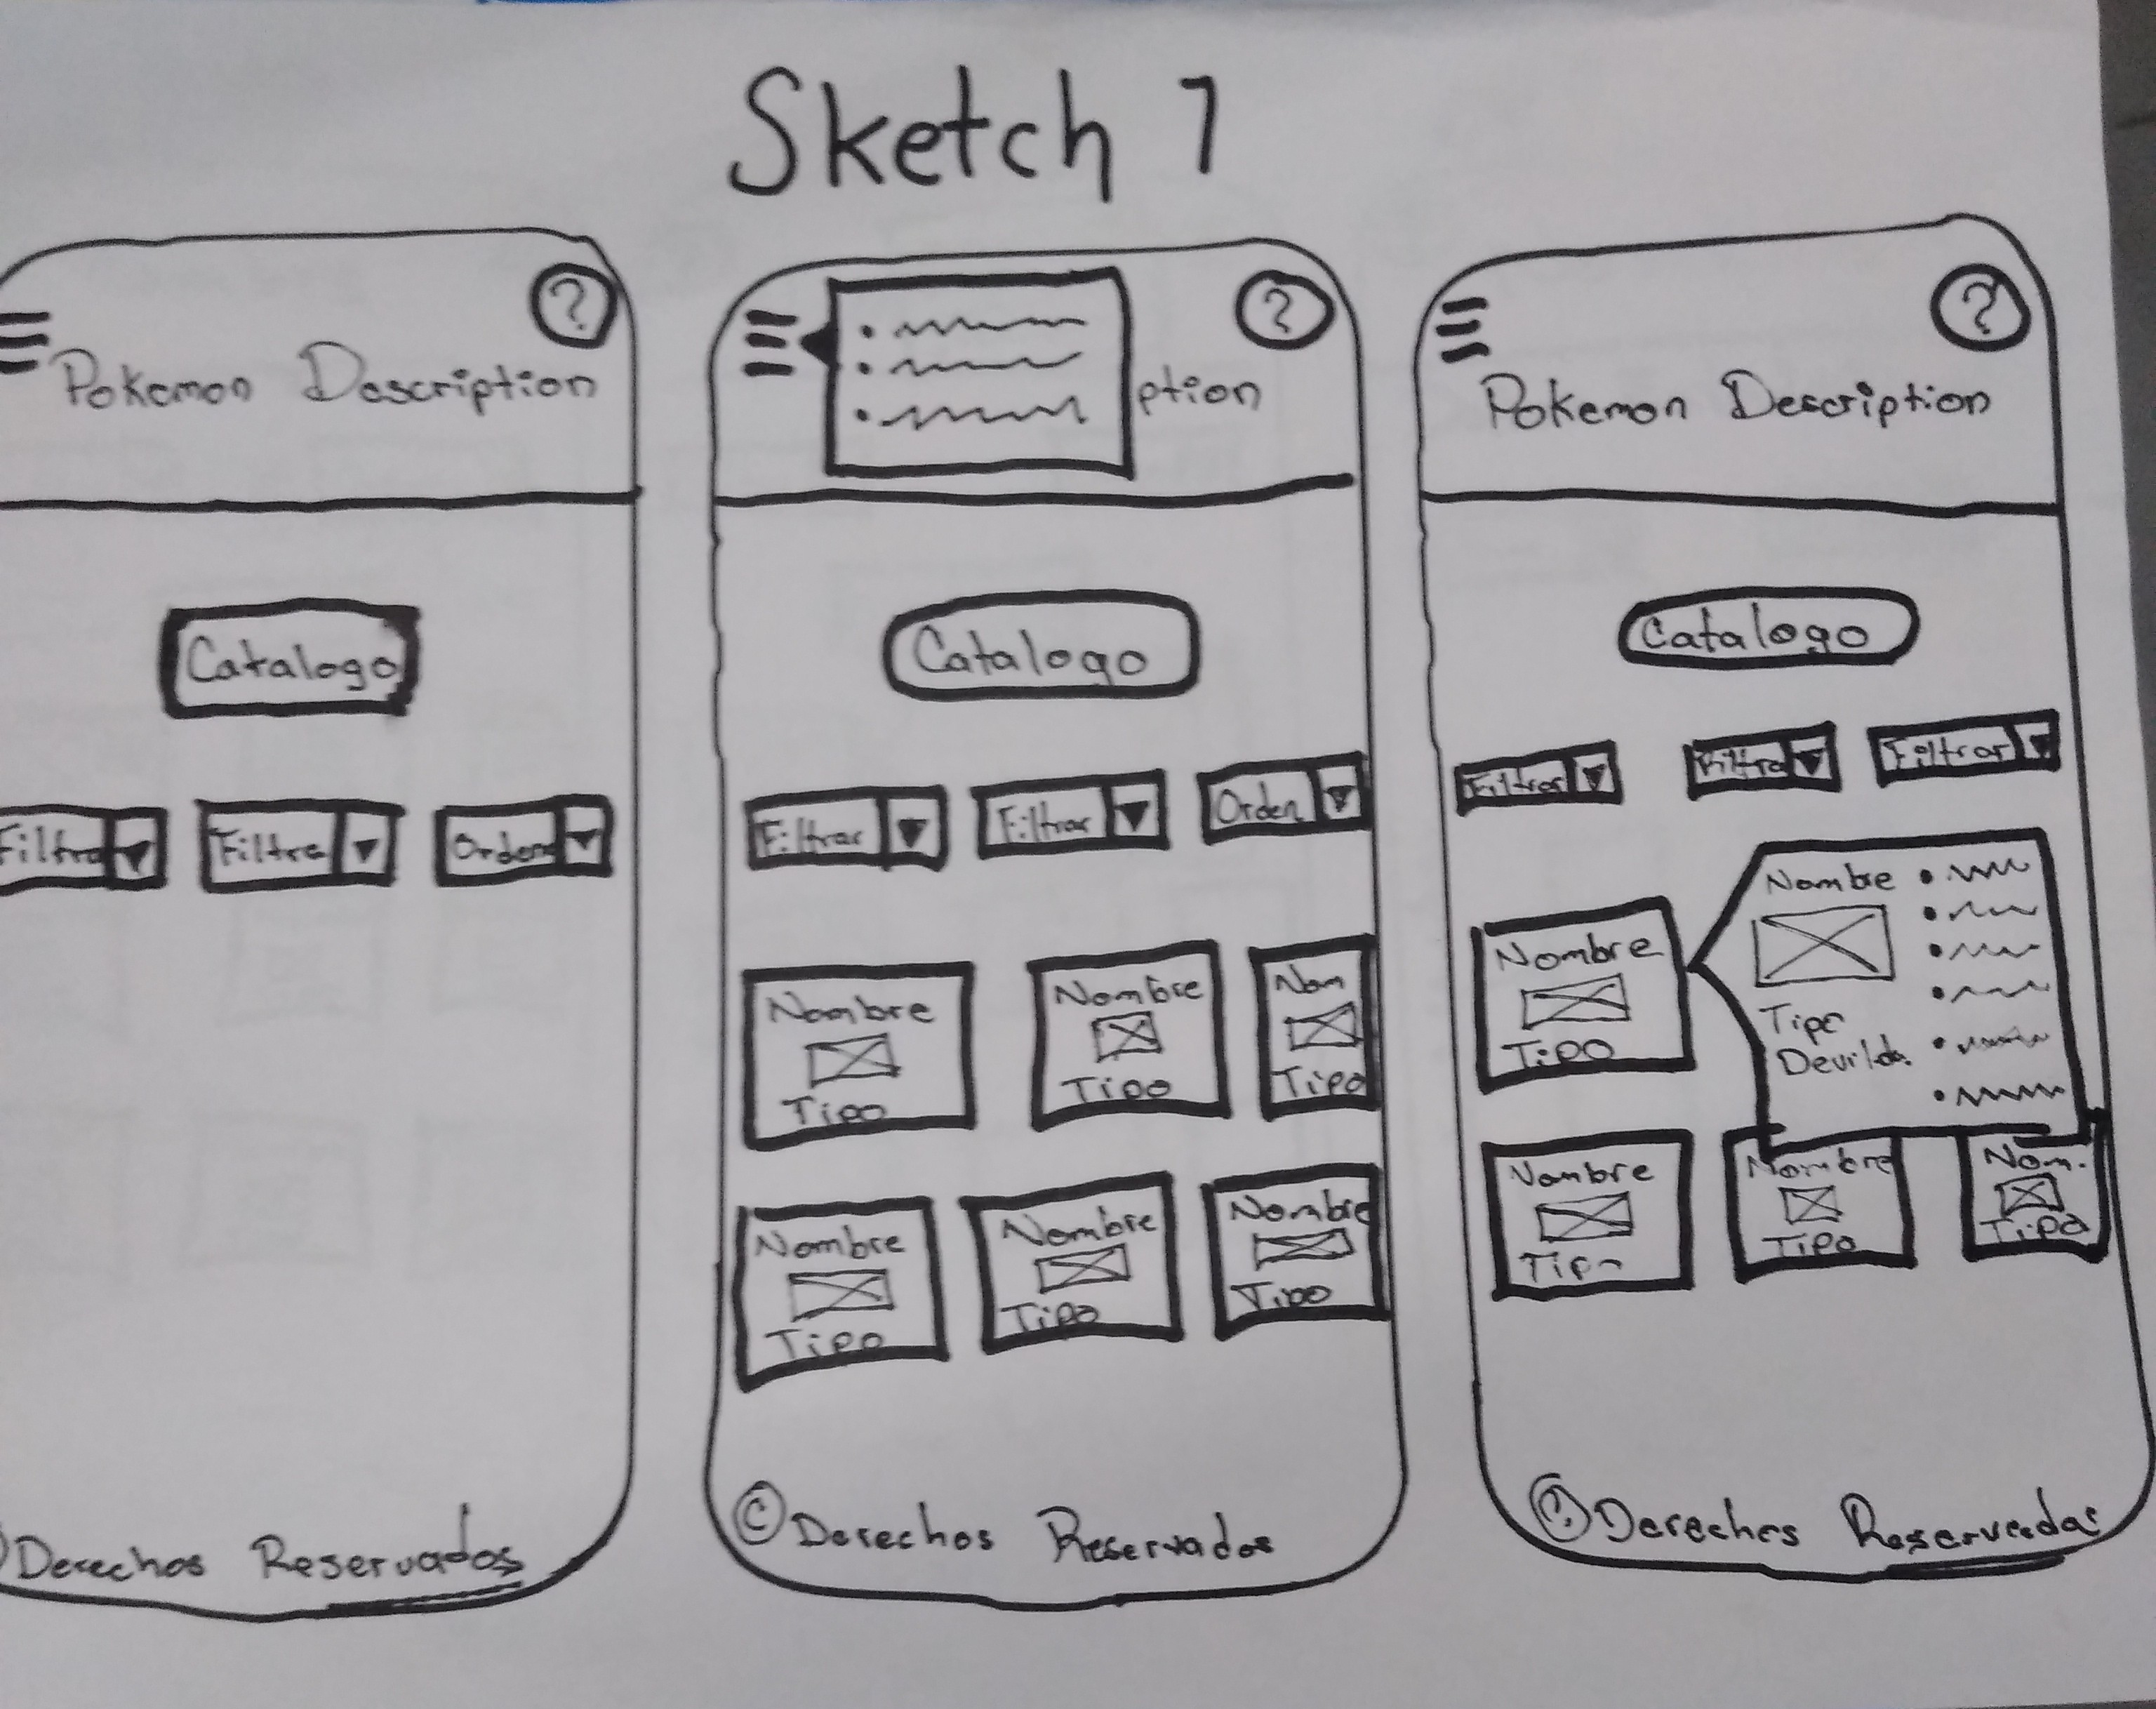 Sketch 1
?
Pokemon Description
Catalogo
Filtra
Filtra
Orden
Derechos Reservados
?
ption
Catalogo
Filtrar
Filtrar
Orden
Nombre
Tipo
Nombre
Tipo
Nom
Tipo
Nombre
Tipo
Nombre
Tipo
Nombre
Tipo
© Derechos Reservados
?
Pokemon Description
Catalogo
Filtrar
Filtra
Filtrar
Nombre
Tipo
Nombre
Tipo
Nombre
Tipo
Nombre
Tipo
Nom.
Tipo
Derechos Reservados